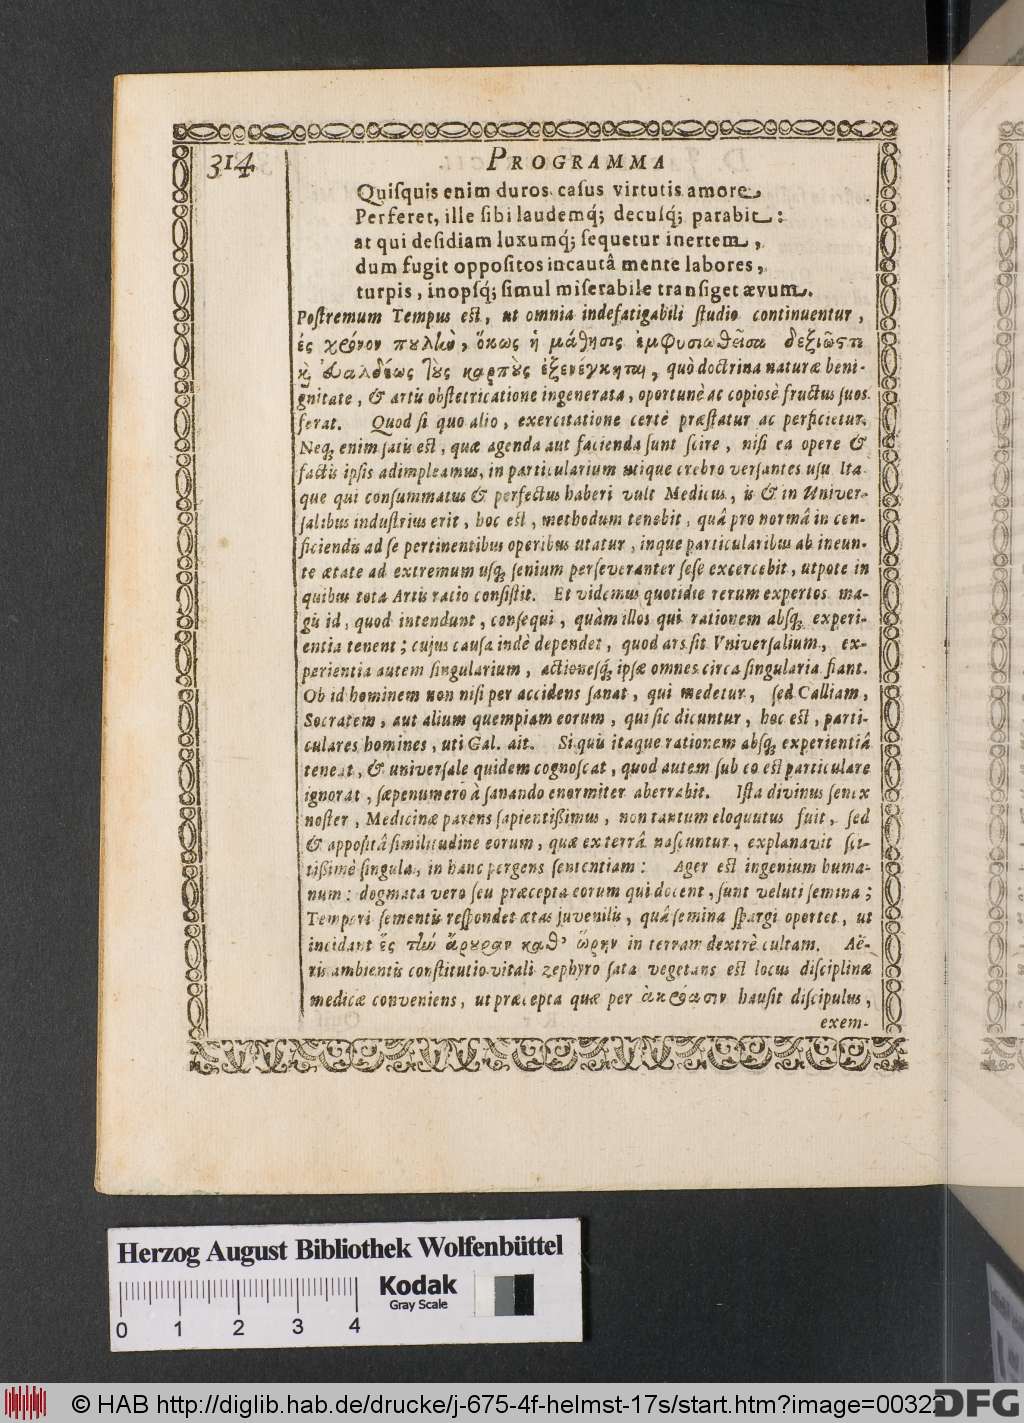 314
PROGRAMMA
Quiſquis enim duros caſus virtutis amore
Perferet, ille ſibi laudemq́; decuſq́; parabit:
at qui deſidiam luxumq́; ſequetur inertem,
dum fugit oppoſitos incautâ mente labores,
turpis, inopſq́; ſimul miſerabile tranſiget ævum.
Poſtremum Tempus eſt, ut omnia indefatigabili ſtudio continuentur,
ἐς χρόνον πουλὺν, ὅκως ἡ μάθησις ἐμφυσιωθεῖσα δεξιῶς τε
καὶ εὐαλδέως τοὺς καρποὺς ἐξενέγκηται, quò doctrina naturæ beni-
gnitate, & artis obſtetricatione ingenerata, oportunè ac copioſè fructus ſuos
ferat. Quod ſi quo alio, exercitatione certè præſtatur ac perficietur.
Neq; enim ſatis eſt, quæ agenda aut facienda ſunt ſcire, niſi ea opere &
factis ipſis adimpleamus, in particularium utique crebro verſantes uſu. Ita-
que qui conſummatus & perfectus haberi vult Medicus, is & in Univer-
ſalibus induſtrius erit, hoc eſt, methodum tenebit, quâ pro normâ in con-
ficiendis ad ſe pertinentibus operibus utatur, inque particularibus ab ineun-
te ætate ad extremum uſq; ſenium perſeveranter ſeſe excercebit, utpote in
quibus tota Artis ratio conſiſtit. Et videmus quotidie rerum expertos ma-
gis id, quod intendunt, conſequi, quàm illos qui rationem abſq; experi-
entia tenent; cujus cauſa indè dependet, quod ars ſit Vniverſalium, ex-
perientia autem ſingularium, actioneſq́; ipſæ omnes circa ſingularia fiant.
Ob id hominem non niſi per accidens ſanat, qui medetur, ſed Calliam,
Socratem, aut alium quempiam eorum, qui ſic dicuntur, hoc eſt, parti-
culares homines, uti Gal. ait. Si quis itaque rationem abſq; experientiâ
teneat, & univerſale quidem cognoſcat, quod autem ſub eo eſt particulare
ignorat, ſæpenumerò à ſanando enormiter aberrabit. Iſta divinus ſenex
noſter, Medicinæ parens ſapientißimus, non tantum eloquutus fuit, ſed
& appoſitâ ſimilitudine eorum, quæ ex terrâ naſcuntur, explanavit ſci-
tißimè ſingula, in hanc pergens ſententiam: Ager eſt ingenium huma-
num: dogmata vero ſeu præcepta eorum qui docent, ſunt veluti ſemina;
Temperi ſementis reſpondet ætas juvenilis, quâ ſemina ſpargi oportet, ut
incidant ἐς τὴν ἄρουραν καθ' ὥρην in terram dextrè cultam. Aë-
ris ambientis conſtitutio vitali zephyro ſata vegetans eſt locus diſciplinæ
medicæ conveniens, ut præcepta quæ per ἀκρόασιν hauſit diſcipulus,
exem-
Herzog August Bibliothek Wolfenbüttel
Kodak
Gray Scale
0 1 2 3 4
© HAB http://diglib.hab.de/drucke/j-675-4f-helmst-17s/start.htm?image=00322
DFG